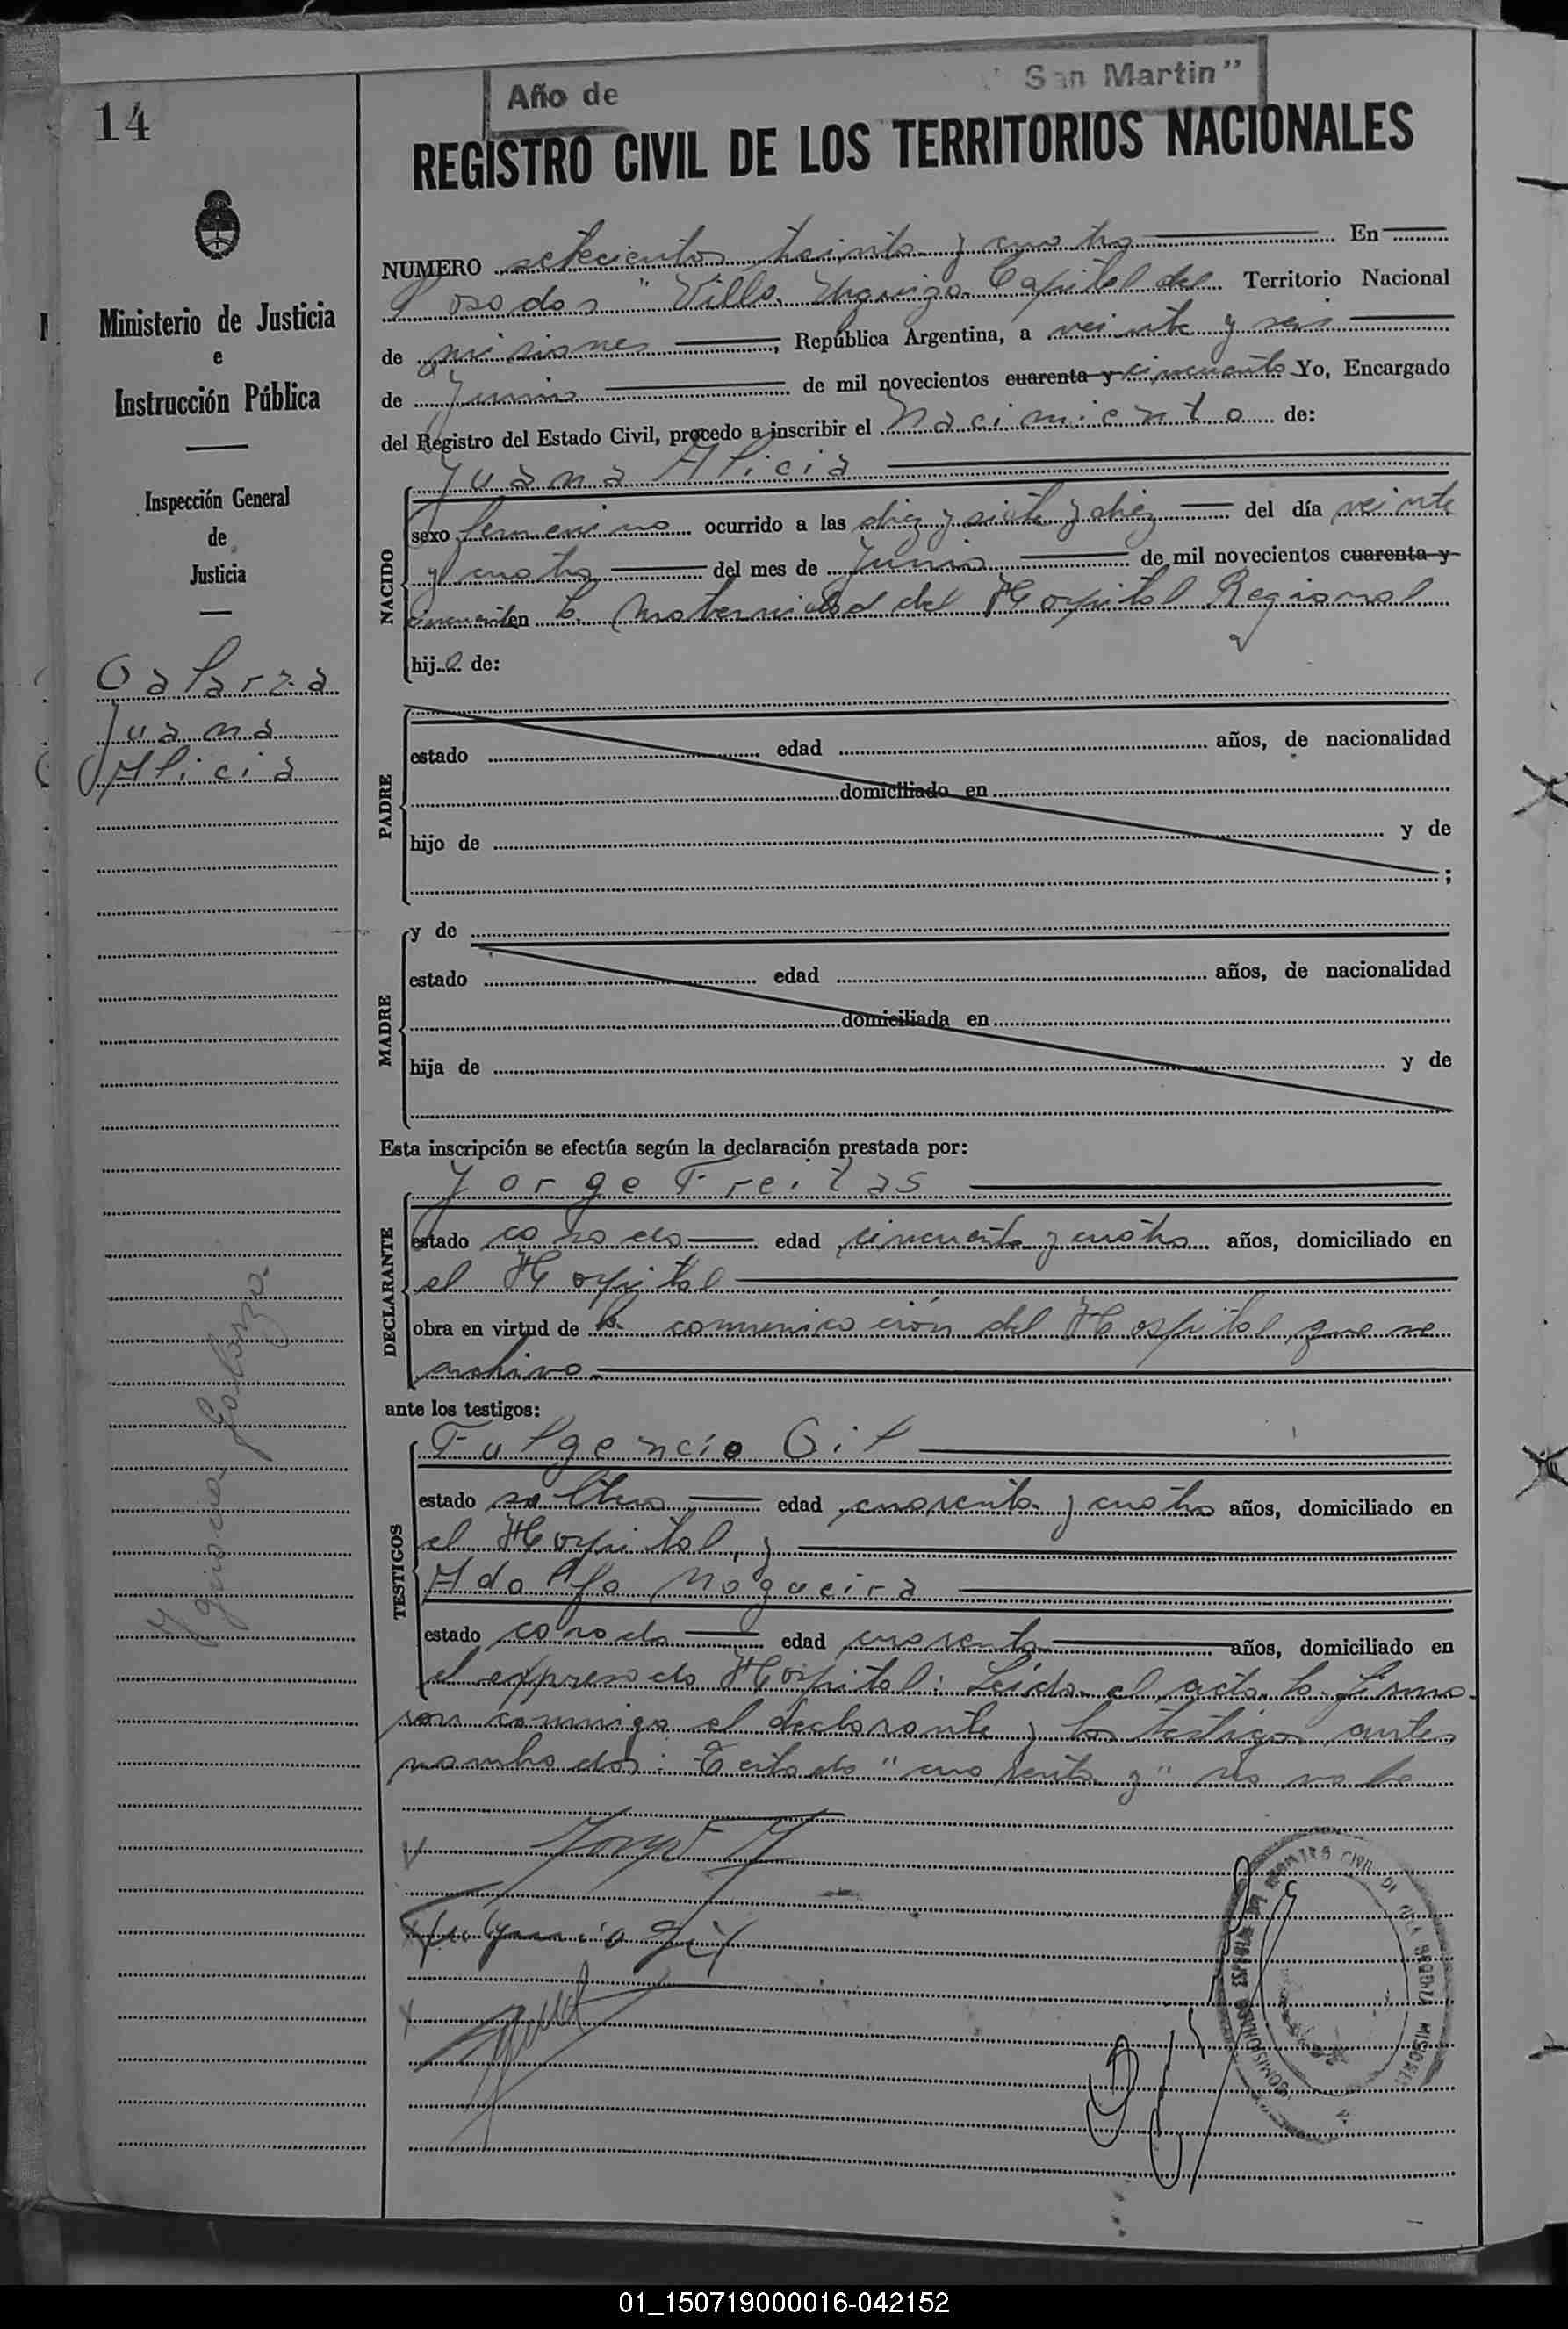 14
Ministerio de Justicia
e
Instrucción Pública
Inspección General
de
Justicia
Galarza
Juana
Alicia
Ygnacia Galarza
Año de San Martin"
REGISTRO CIVIL DE LOS TERRITORIOS NACIONALES
NUMERO setecientos treinta y cuatro En
Posadas "Villa Urquiza Capital del Territorio Nacional
de misiones, República Argentina, a veinte y seis
de Junio de mil novecientos cuarenta y cincuenta Yo, Encargado
del Registro del Estado Civil, procedo a inscribir el Nacimiento de:
Juana Alicia
NACIDO
sexo femenino ocurrido a las diez y siete y diez del día veinte
y cuatro del mes de Junio de mil novecientos cuarenta y
en la Maternidad del Hospital Regional
hija de:
PADRE
estado edad años, de nacionalidad
domiciliado en
hijo de y de
;
MADRE
y de
estado edad años, de nacionalidad
domiciliada en
hija de y de
Esta inscripción se efectúa según la declaración prestada por:
DECLARANTE
Jorge Freitas
estado casado edad cincuenta y cuatro años, domiciliado en
el Hospital
obra en virtud de la comunicación del Hospital que se
archiva
ante los testigos:
TESTIGOS
Fulgencio Gil
estado soltero edad cuarenta y cuatro años, domiciliado en
el Hospital, y
Adolfo Nogueira
estado casado edad cuarenta años, domiciliado en
el expresado Hospital: Leída el acta la firma-
ron conmigo el declarante y los testigos antes
nombrados: Testado "cuarenta y" no vale
Fulgencio Gil
REGISTRO CIVIL
01_150719000016-042152